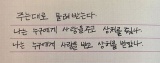 주는대로 돌려받는다
나는 누구에게 사랑을 주고 상처를 줬나
나는 누구에게 사랑을 받고 상처를 받았나.